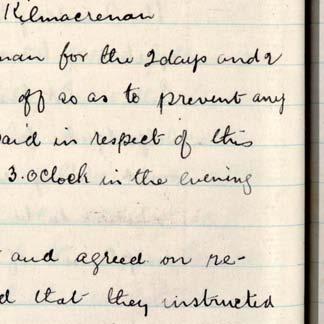 Kilmacrenan
man for the 2 days and 2
off so as to prevent any
aid in respect of this
3.oClock in the evening
and agreed on re-
d that they instructed